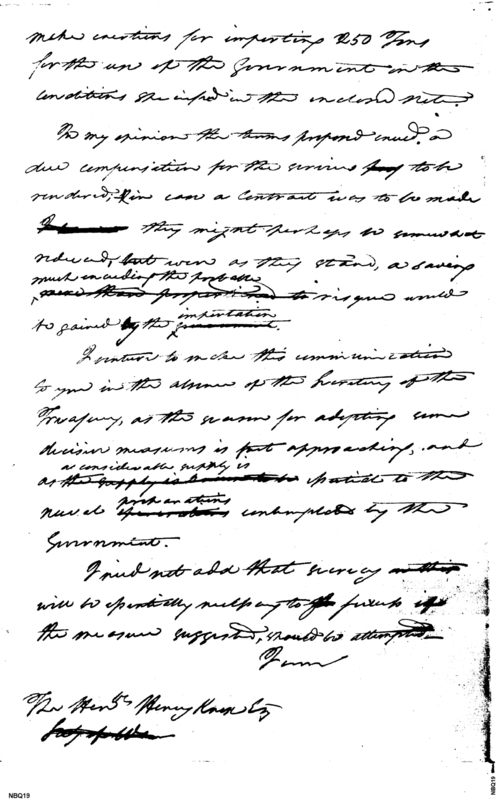 make exertions for importing 250 Tons
for the use of the Government on the
conditions specified in the inclosed Note.
In my opinion the terms proposed exceed a
due compensation for the services to be
rendered, & in case a Contract was to be made
they might perhaps be somewhat
reduced, but even as they stand, a saving
much exceeding the probable
more than proportioned to risque would
be gained by the importation
I venture to make this communication
to you in the absence of the Secretary of the
Treasury, as the season for adopting some
decisive measures is fast approaching, and
a considerable supply is
as the supply is essential to the
preparations
naval operations contemplated by the
Government.
I need not add that secrecy
will be essentially necessary to success if
the measure suggested, should be attempted
I am
The Honble Henry Knox Esq
Secy of War
NBQ19
NBQ19